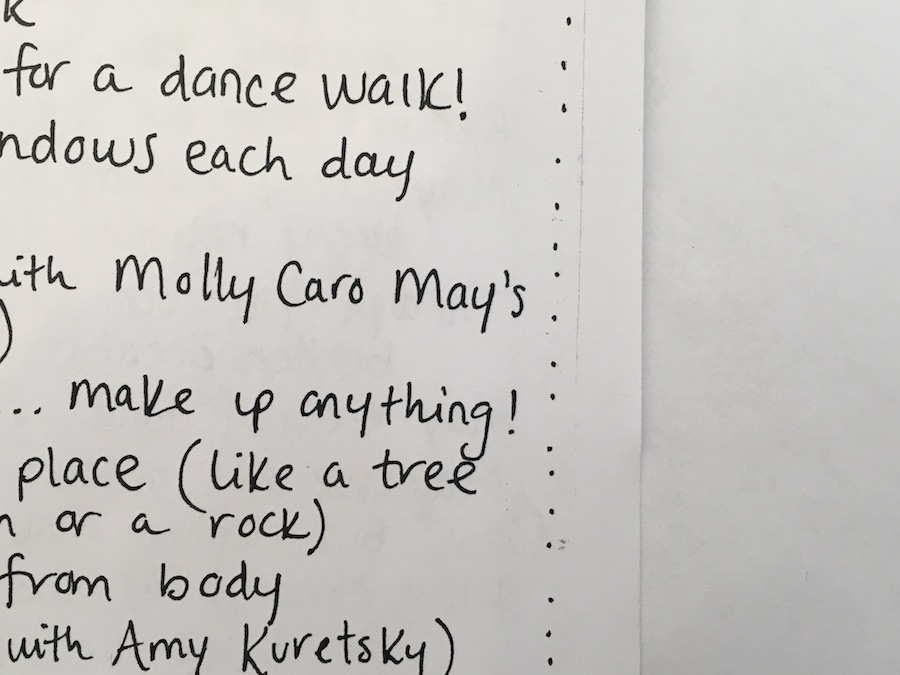 k
for a dance walk!
ndows each day
with Molly Caro May's
)
... make up anything!
place (like a tree
n or a rock)
from body
with Amy Kuretsky)